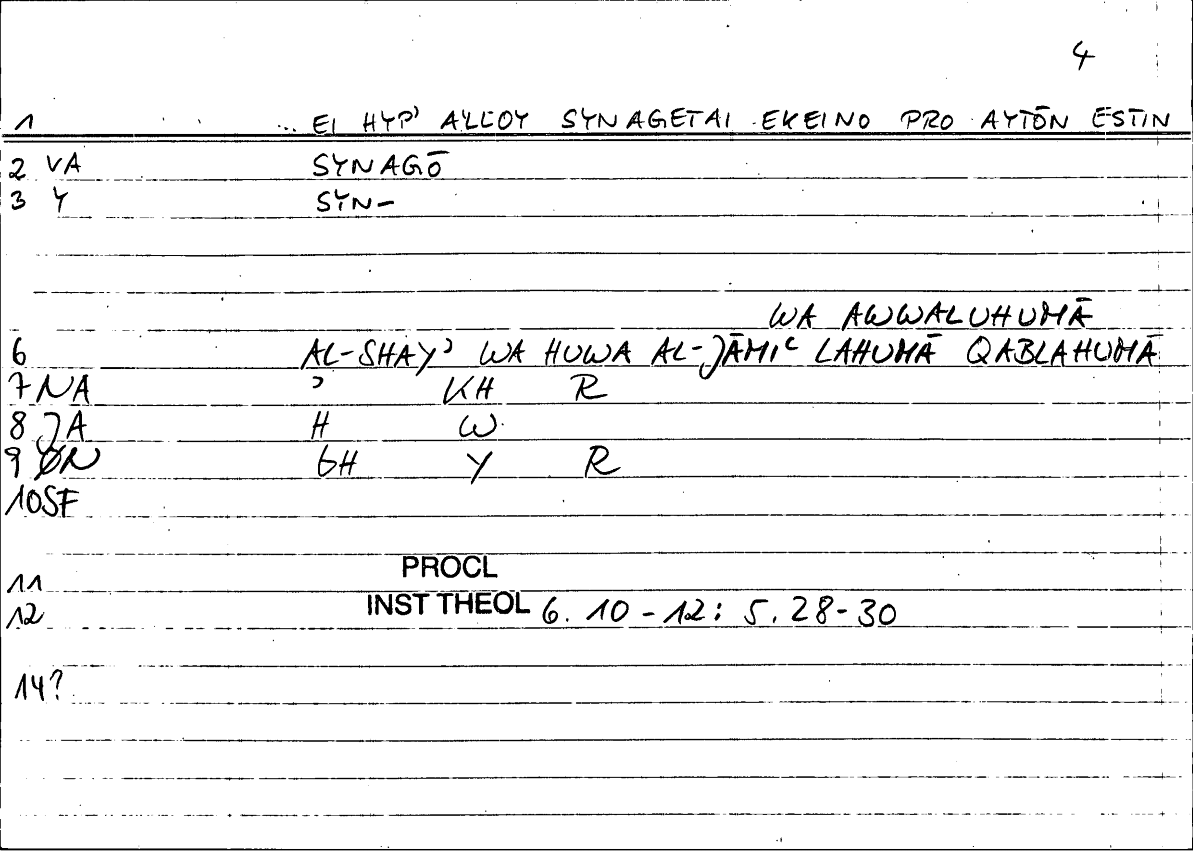 4
1 ... EI HYP' ALLOY SYNAGETAI EKEINO PRO AYTŌN ESTIN
2 VA SYNAGŌ
3 Y SYN-
WA AWWALUHUMĀ
6 AL-SHAYʾ WA HUWA AL-JĀMIʿ LAHUMĀ QABLAHUMĀ
7 NA ʾ KH R
8 JA H W
9 ØN GH Y R
10 SF
11 PROCL
12 INST THEOL 6. 10 - 12 : 5. 28 - 30
14?